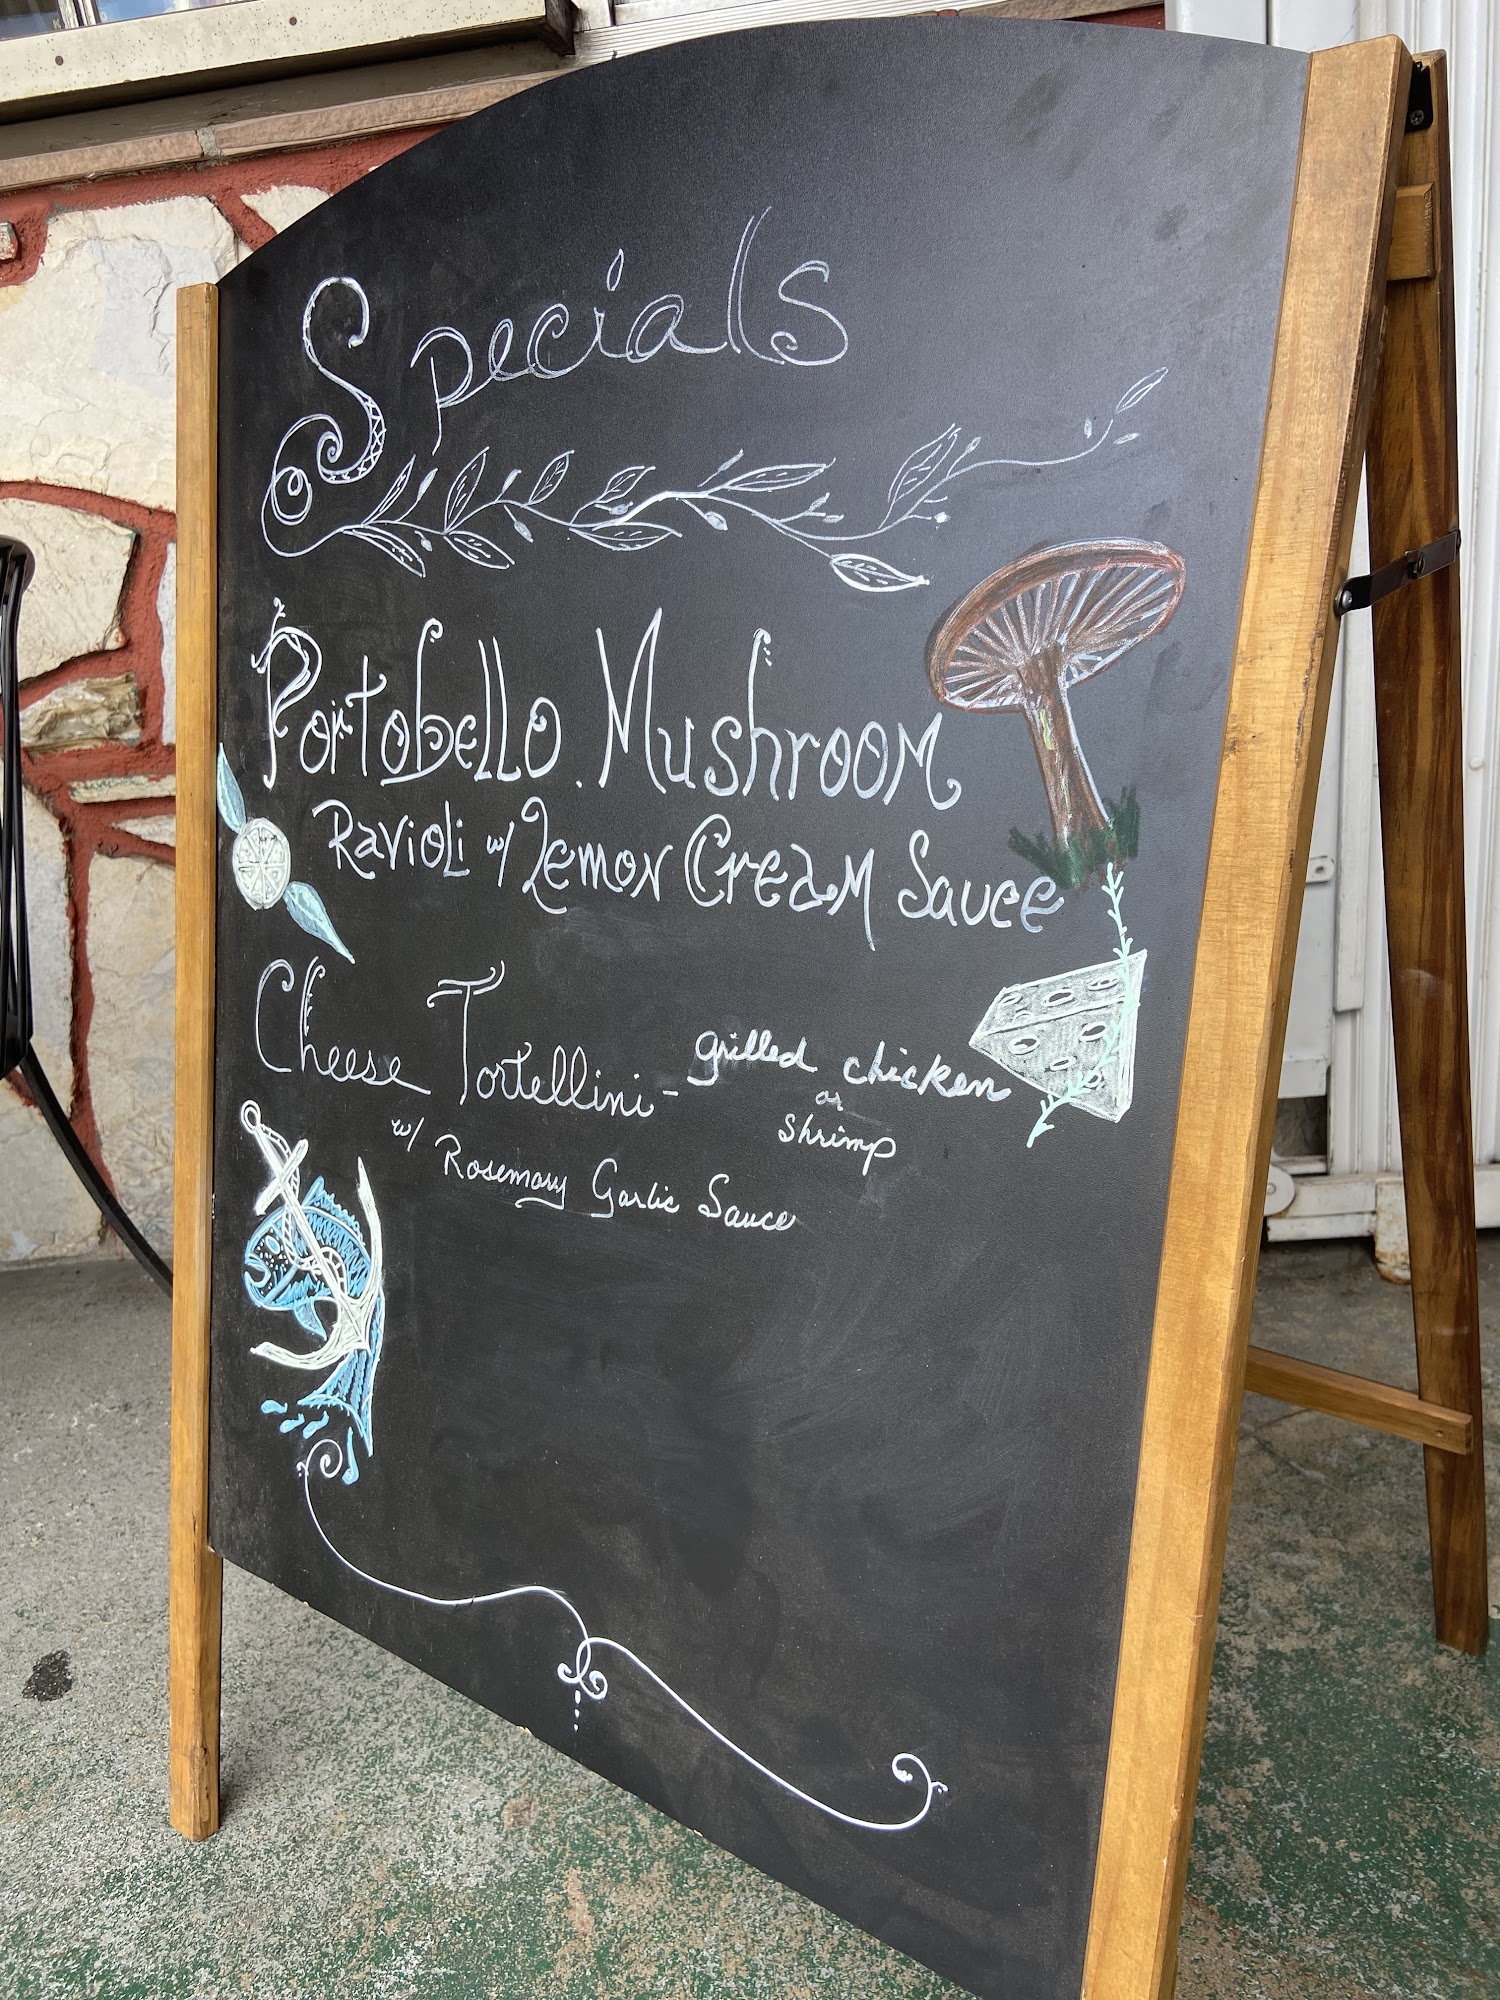 Specials
Portobello Mushroom
Ravioli w/ Lemon Cream Sauce
Cheese Tortellini - grilled chicken
or
shrimp
w/ Rosemary Garlic Sauce